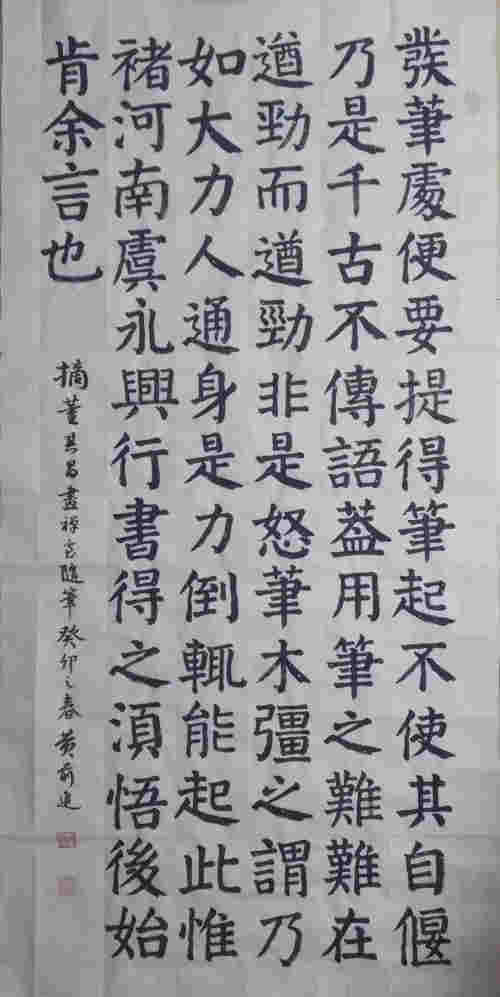 發筆處便要提得筆起不使其自偃
乃是千古不傳語葢用筆之難難在
遒勁而遒勁非是怒筆木彊之謂乃
如大力人通身是力倒輒能起此惟
褚河南虞永興行書得之須悟後始
肯余言也
摘董其昌畫禪室隨筆癸卯之春黄前進